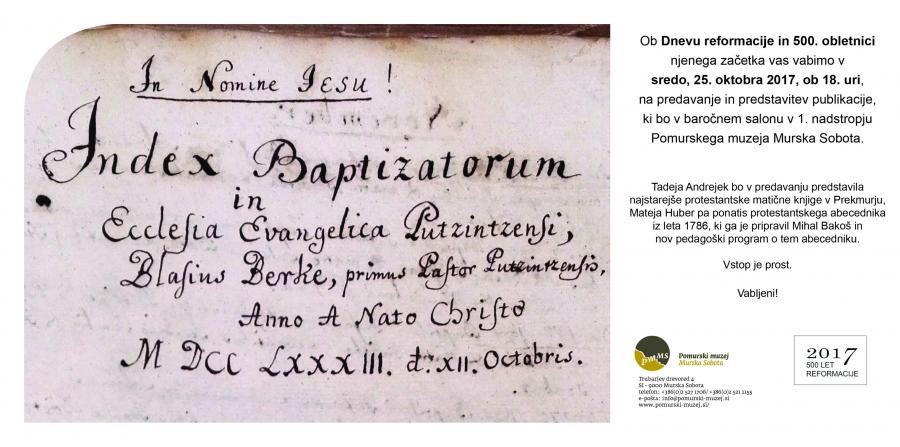 In Nomine IESU !
Index Baptizatorum
in
Ecclesia Evangelica Putzintzensi,
Blasius Berke, primus Pastor Putzintzensis,
Anno A Nato Christo
M DCC LXXXIII. d. XII. Octobris.
Ob Dnevu reformacije in 500. obletnici
njenega začetka vas vabimo v
sredo, 25. oktobra 2017, ob 18. uri,
na predavanje in predstavitev publikacije,
ki bo v baročnem salonu v 1. nadstropju
Pomurskega muzeja Murska Sobota.
Tadeja Andrejek bo v predavanju predstavila
najstarejše protestantske matične knjige v Prekmurju,
Mateja Huber pa ponatis protestantskega abecednika
iz leta 1786, ki ga je pripravil Mihal Bakoš in
nov pedagoški program o tem abecedniku.
Vstop je prost.
Vabljeni!
PMMS
Pomurski muzej
Murska Sobota
Trubarjev drevored 4
SI - 9000 Murska Sobota
telefon: +386(0)2 527 1706/ +386(0)2 521 1155
e-pošta: info@pomurski-muzej.si
www.pomurski-muzej.si/
2017
500 LET
REFORMACIJE